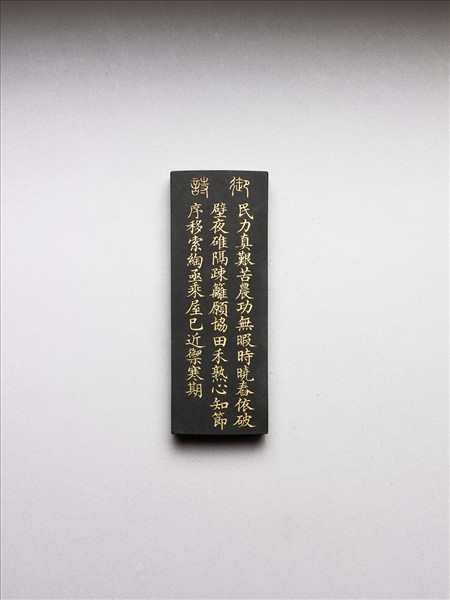 御詩
民力真艱苦農功無暇時曉舂依破
壁夜碓隔疎籬願協田禾熟心知節
序移索綯亟乘屋已近禦寒期